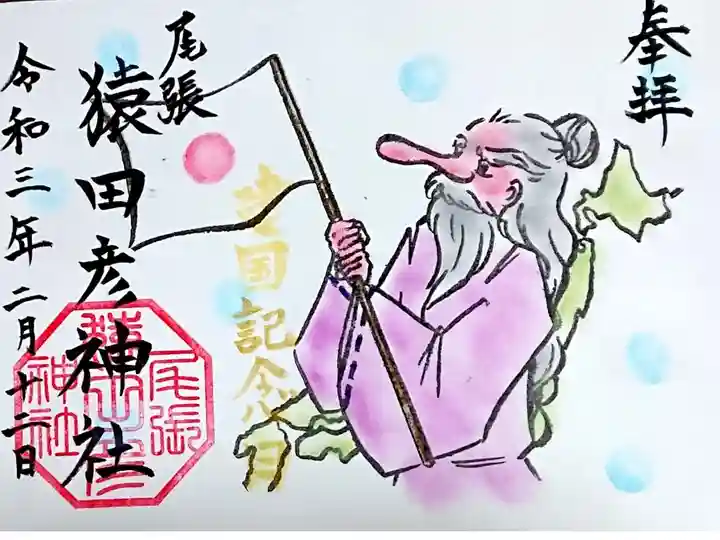 奉拝
建国記念の日
尾張
猿田彦神社
令和三年二月十二日
尾張
猿田彦
神社